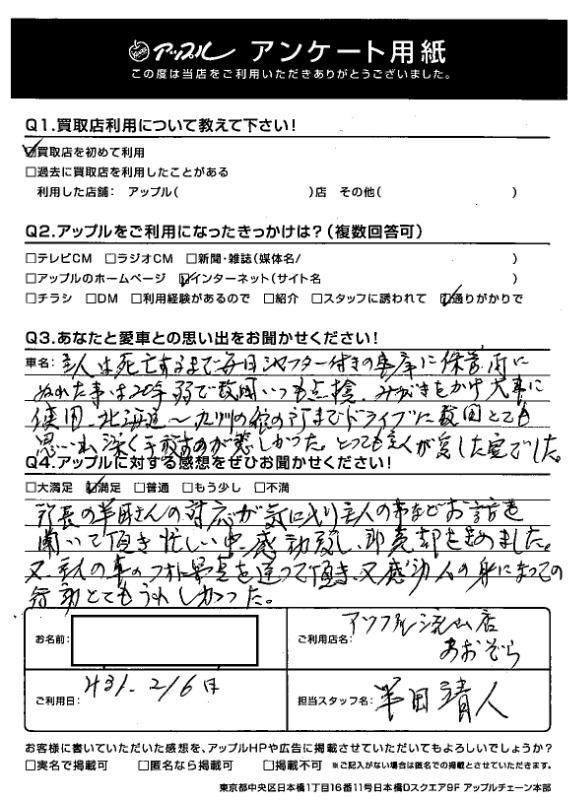 アップル アンケート用紙
この度は当店をご利用いただきありがとうございました。
Q1.買取店利用について教えて下さい!
☑買取店を初めて利用
□過去に買取店を利用したことがある
利用した店舗: アップル( )店 その他( )
Q2.アップルをご利用になったきっかけは?(複数回答可)
□テレビCM □ラジオCM □新聞・雑誌(媒体名/ )
□アップルのホームページ ☑インターネット(サイト名 )
□チラシ □DM □利用経験があるので □紹介 □スタッフに誘われて ☑通りがかりで
Q3.あなたと愛車との思い出をお聞かせください!
車名: 主人は死亡するまで毎日シャッター付きの車庫に保管雨に
ぬれた事は20年弱で数回いつも点検、みがきをかけ大事に
使用、北海道〜九州の までドライブに数回とても
思い出深く手放すのが悲しかった。とっても主人が愛した車でした。
Q4.アップルに対する感想をぜひお聞かせください!
□大満足 ☑満足 □普通 □もう少し □不満
所長の半田さんの対応が気に入り主人の事などお話を
聞いて頂き忙しい中、感動致し、即売却を決めました。
又、主人の車のフォト写真を送って頂き、又感動人の身になっての
行動とてもうれしかった。
お名前:
ご利用店名: アップル流山店
あおぞら
ご利用日: H31.2/6日
担当スタッフ名: 半田靖人
お客様に書いていただいた感想を、アップルHPや広告に掲載させていただいてもよろしいでしょうか?
□実名で掲載可 □匿名なら掲載可 □掲載不可 ※ご記入がない場合は匿名での掲載とさせていただきます。
東京都中央区日本橋1丁目16番11号日本橋Dスクエア9F アップルチェーン本部